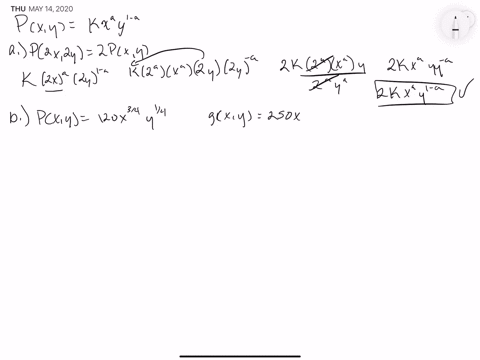 THU MAY 14, 2020
P(x,y) = Kx^a y^{1-a}
a.) P(2x,2y) = 2P(x,y)
K (2x)^a (2y)^{1-a} K(2^a)(x^a)(2y)(2y)^{-a} 2K(2^a)(x^a)y / 2^a y^a 2Kx^a yy^{-a}
2Kx^a y^{1-a} ✓
b.) P(x,y) = 120x^{3/4} y^{1/4} g(x,y) = 250x